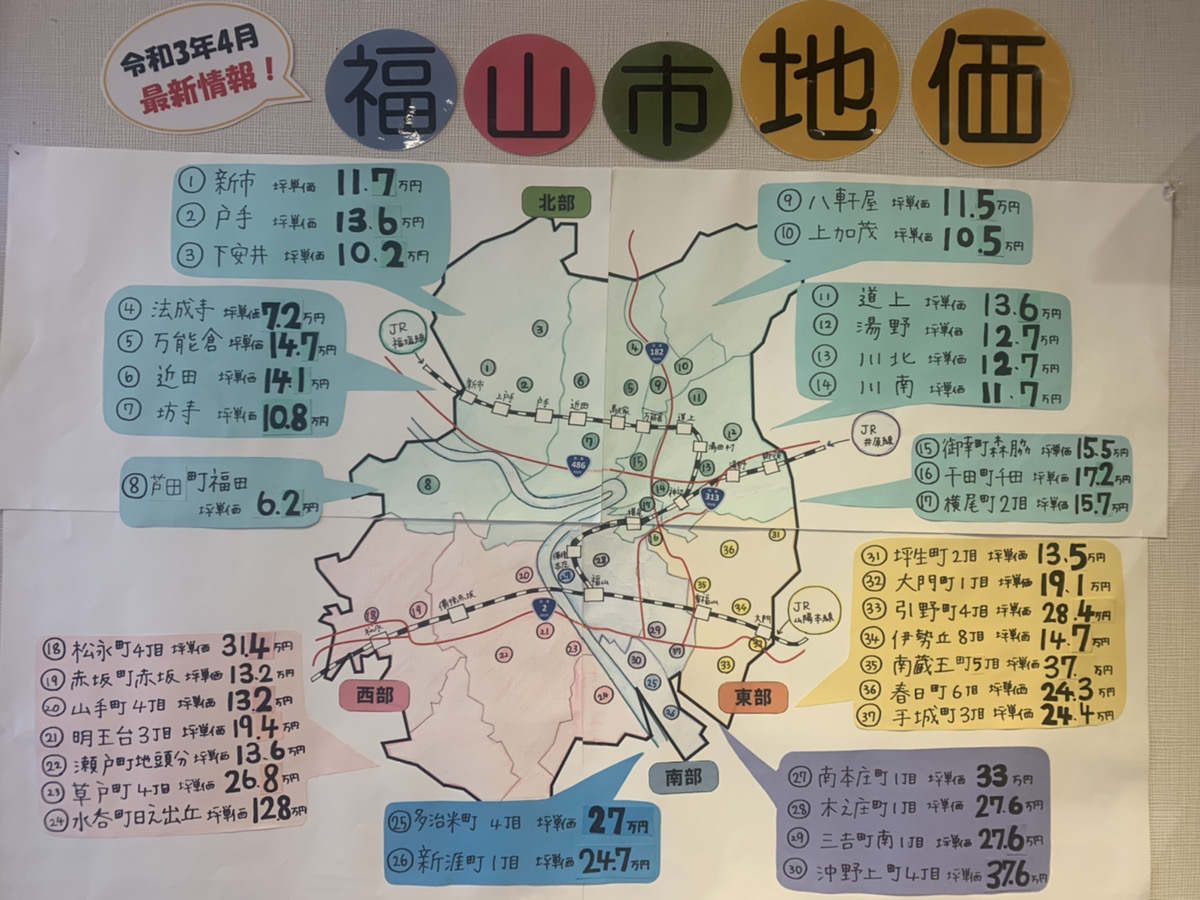 令和3年4月
最新情報！
福山市地価
① 新市 坪単価 11.7万円
② 戸手 坪単価 13.6万円
③ 下安井 坪単価 10.2万円
北部
⑨ 八軒屋 坪単価 11.5万円
⑩ 上加茂 坪単価 10.5万円
④ 法成寺 坪単価 7.2万円
⑤ 万能倉 坪単価 14.7万円
⑥ 近田 坪単価 14.1万円
⑦ 坊寺 坪単価 10.8万円
⑪ 道上 坪単価 13.6万円
⑫ 湯野 坪単価 12.7万円
⑬ 川北 坪単価 12.7万円
⑭ 川南 坪単価 11.7万円
⑧ 芦田町福田
坪単価 6.2万円
⑮ 御幸町森脇 坪単価 15.5万円
⑯ 千田町千田 坪単価 17.2万円
⑰ 横尾町2丁目 坪単価 15.7万円
JR
福塩線
JR
井原線
JR
山陽本線
新市
上戸手
戸手
近田
駅家
万能倉
道上
湯田村
湯野
神辺
横尾
備後
本庄
福山
東福山
大門
備後赤坂
松永
182
486
313
2
㉛ 坪生町2丁目 坪単価 13.5万円
㉜ 大門町1丁目 坪単価 19.1万円
㉝ 引野町4丁目 坪単価 28.4万円
㉞ 伊勢丘8丁目 坪単価 14.7万円
㉟ 南蔵王町5丁目 坪単価 37.万円
㊱ 春日町6丁目 坪単価 24.3万円
㊲ 手城町3丁目 坪単価 24.4万円
⑱ 松永町4丁目 坪単価 31.4万円
⑲ 赤坂町赤坂 坪単価 13.2万円
⑳ 山手町4丁目 坪単価 13.2万円
㉑ 明王台3丁目 坪単価 19.4万円
㉒ 瀬戸町地頭分 坪単価 13.6万円
㉓ 草戸町4丁目 坪単価 26.8万円
㉔ 水呑町日之出丘 坪単価 12.8万円
西部
東部
南部
㉕ 多治米町4丁目 坪単価 27万円
㉖ 新涯町1丁目 坪単価 24.7万円
㉗ 南本庄町1丁目 坪単価 33万円
㉘ 木之庄町1丁目 坪単価 27.6万円
㉙ 三吉町南1丁目 坪単価 27.6万円
㉚ 沖野上町4丁目 坪単価 37.6万円